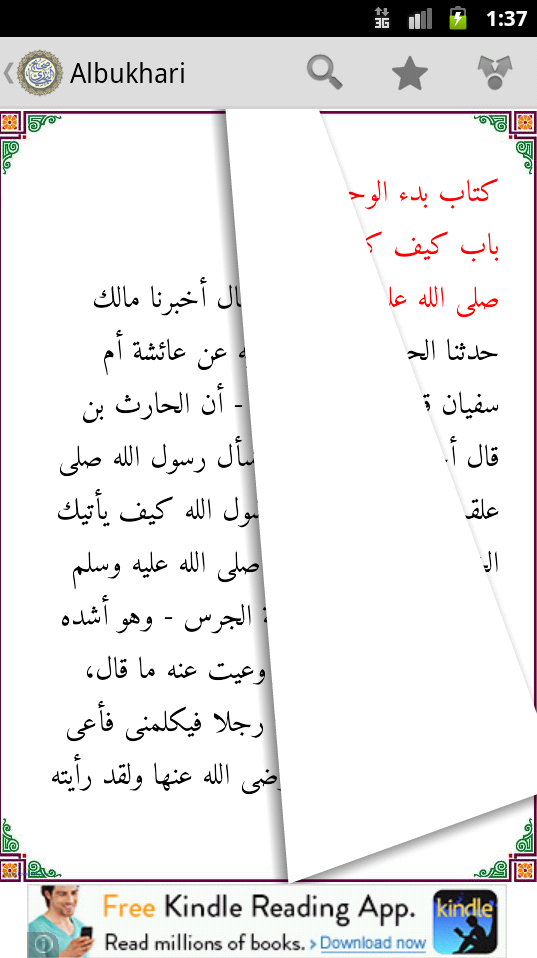 3G 1:37
Albukhari
كتاب بدء الوح
باب كيف ك
صلى الله عل ال أخبرنا مالك
حدثنا الح ه عن عائشة أم
سفيان ق - أن الحارث بن
قال أ سأل رسول الله صلى
علق سول الله كيف يأتيك
صلى الله عليه وسلم
ة الجرس - وهو أشده
وعيت عنه ما قال،
رجلا فيكلمنى فأعى
ضى الله عنها ولقد رأيته
Free Kindle Reading App.
Read millions of books. > Download now
kindle